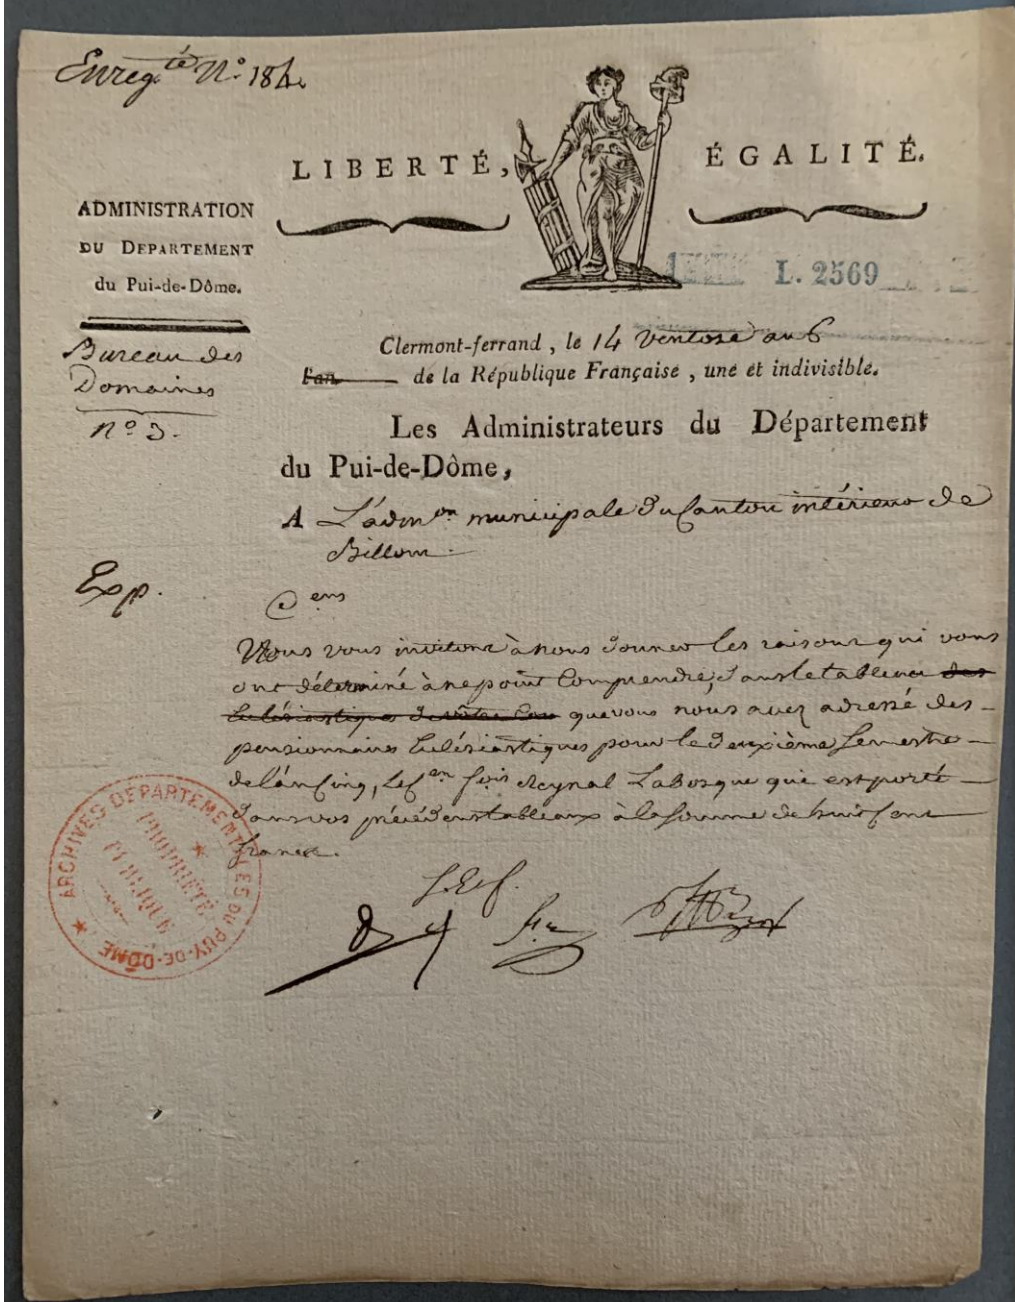 Enreg.té N.o 184.
LIBERTÉ, ÉGALITÉ.
ADMINISTRATION
DU DEPARTEMENT
du Pui-de-Dôme.
L. 2569
Bureau des
Domaines
n.o 3.
Clermont-ferrand, le 14 ventose an 6
l'an de la République Française, une et indivisible.
Les Administrateurs du Département
du Pui-de-Dôme,
A L'adm.on municipale du Canton intérieur de
Billom.
Exp.
C.ens
Nous vous invitons à nous donner les raisons qui vous
ont déterminé à ne point Comprendre, dans le tableau des
Eclésiastiques de votre Can que vous nous avez adressé des
pensionnaires Eclésiastiques pour le deuxième Semestre
de l'an Cinq, le C.en f.ois Reynal Labosque qui est porté
dans vos précédens tableaux à la Somme de huit Cent
francs.
S. et f.
ARCHIVES DÉPARTEMENTALES DU PUY-DE-DÔME
PROPRIÉTÉ
PUBLIQUE